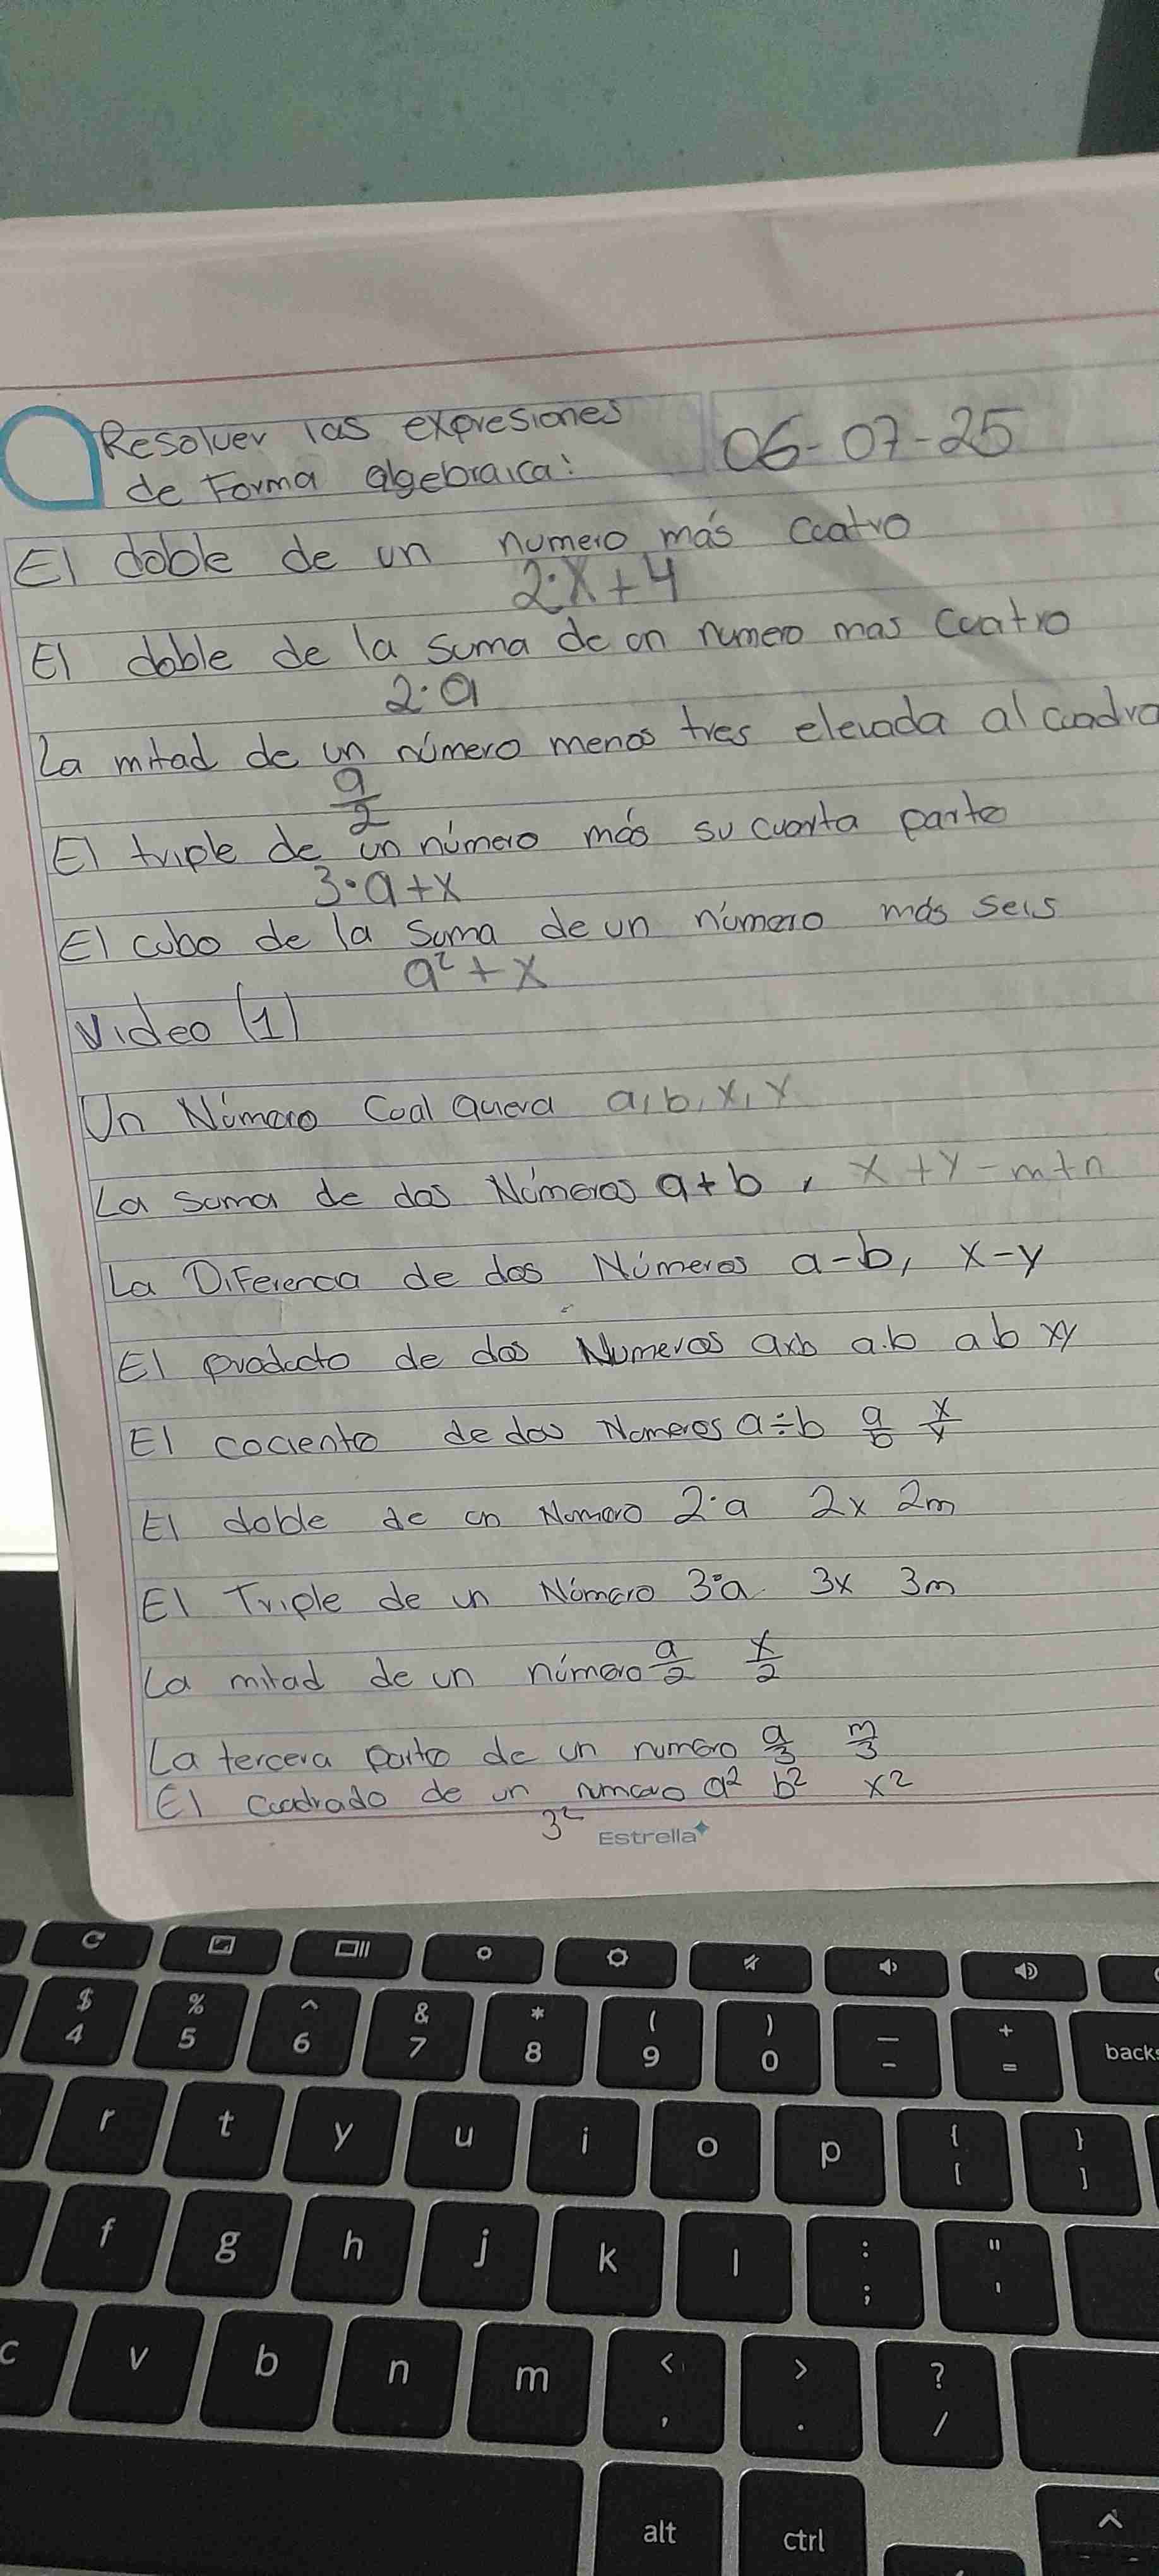 Resolver las expresiones
de Forma algebraica:
06-07-25
El doble de un numero más cuatro
2·x+4
El doble de la suma de un numero mas cuatro
2·a
La mitad de un número menos tres elevada al cuadra
a/2
El triple de un número más su cuarta parte
3·a+x
El cubo de la suma de un número más seis
a²+x
Video (1)
Un Número Cual quiera a, b, x, y
La suma de dos Números a+b, x+y-m+n
La Diferenca de dos Números a-b, x-y
El producto de dos Numeros axb a.b ab xy
El cociente de dos Numeros a÷b a/b x/y
El doble de un Numero 2·a 2x 2m
El Triple de un Número 3·a 3x 3m
La mitad de un número a/2 x/2
La tercera parte de un numero a/3 m/3
El cuadrado de un numero a² b² x²
3²
Estrella
$ % ^ & * ( ) _ +
4 5 6 7 8 9 0 - = back
r t y u i o p { [ } ]
f g h j k l : ; " '
c v b n m < , > . ? /
alt ctrl